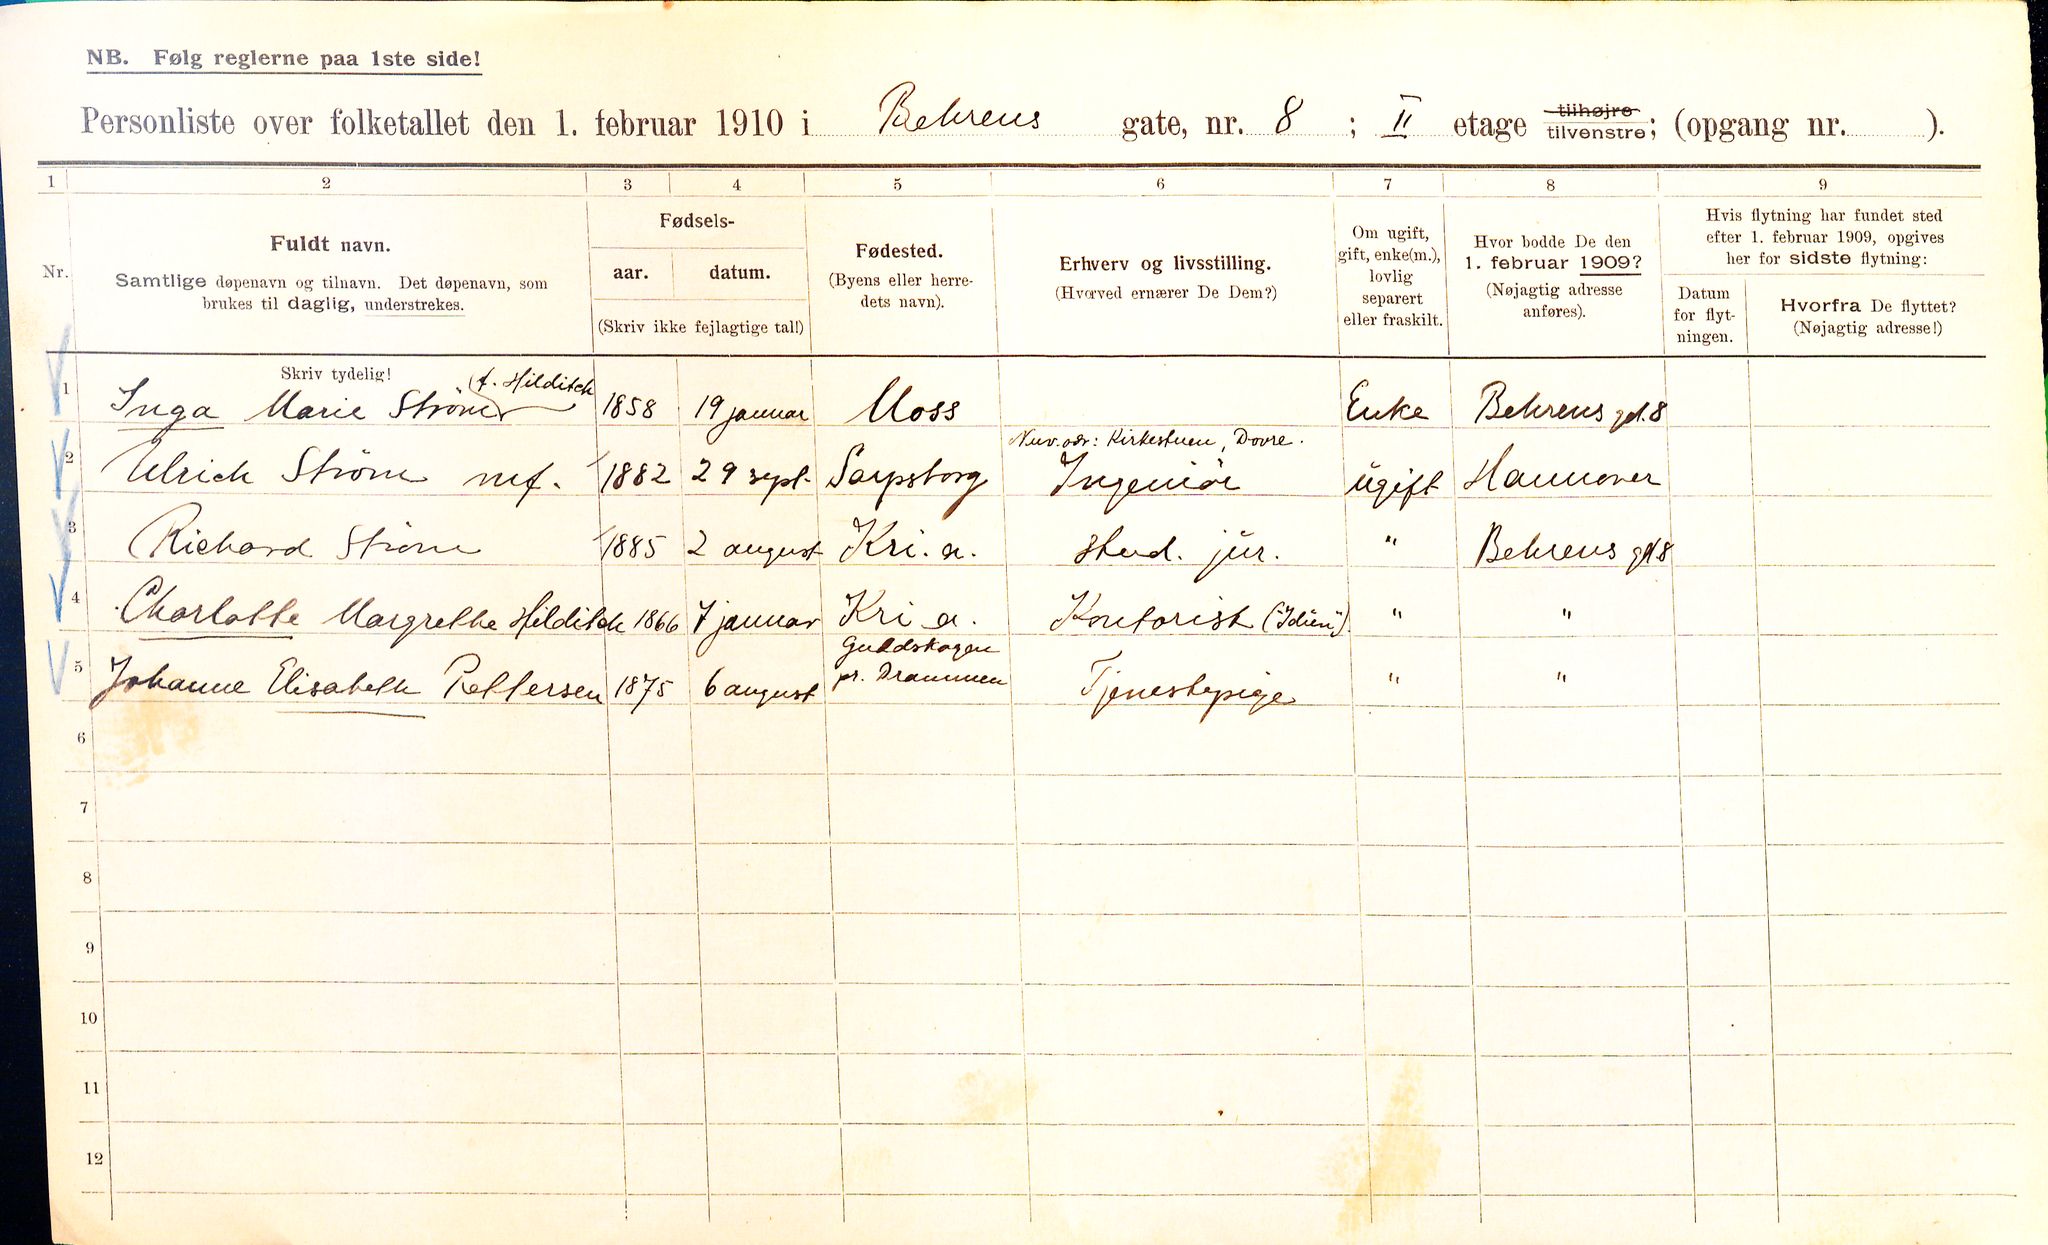 NB. Følg reglerne paa 1ste side!
Personliste over folketallet den 1. februar 1910 i Behrens gate, nr. 8 ; II etage tilhøjre tilvenstre; (opgang nr. ).
1 2 3 4 5 6 7 8 9
Nr.
Fuldt navn.
Samtlige døpenavn og tilnavn. Det døpenavn, som
brukes til daglig, understrekes.
Fødsels-
aar. datum.
(Skriv ikke fejlagtige tal!)
Fødested.
(Byens eller herre-
dets navn).
Erhverv og livsstilling.
(Hvorved ernærer De Dem?)
Om ugift,
gift, enke(m.),
lovlig
separert
eller fraskilt.
Hvor bodde De den
1. februar 1909?
(Nøjagtig adresse
anføres).
Hvis flytning har fundet sted
efter 1. februar 1909, opgives
her for sidste flytning:
Datum
for flyt-
ningen.
Hvorfra De flyttet?
(Nøjagtig adresse!)
Skriv tydelig!
f. Hilditch
1 Inga Marie Strøm 1858 19 januar Moss Enke Behrens gd. 8
Nuv. adr: Kirkestuen, Dovre.
2 Ulrich Strøm 1882 29 sept. Sarpsborg Ingeniør ugift Hannover
3 Richard Strøm 1885 2 august Kri. a. stud. jur. " Behrens gd. 8
4 Charlotte Margrethe Hilditch 1866 7 januar Kri a. Kontorist ("Idun") " "
Guldskogen
5 Johanne Elisabeth Pettersen 1875 6 august pr. Drammen Tjenestepige " "
6
7
8
9
10
11
12